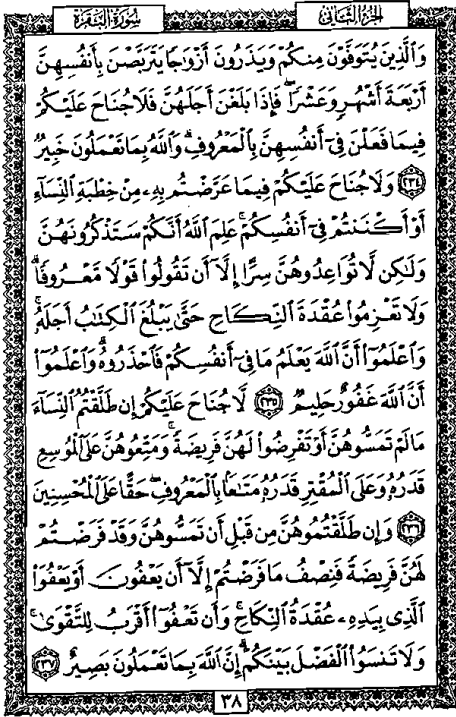 سُورَةُ البَقَرَةِ الجُزءُ الثَّانِي
وَالَّذِينَ يُتَوَفَّوْنَ مِنكُمْ وَيَذَرُونَ أَزْوَاجًا يَتَرَبَّصْنَ بِأَنفُسِهِنَّ
أَرْبَعَةَ أَشْهُرٍ وَعَشْرًا ۖ فَإِذَا بَلَغْنَ أَجَلَهُنَّ فَلَا جُنَاحَ عَلَيْكُمْ
فِيمَا فَعَلْنَ فِي أَنفُسِهِنَّ بِالْمَعْرُوفِ ۗ وَاللَّهُ بِمَا تَعْمَلُونَ خَبِيرٌ
﴿٢٣٤﴾ وَلَا جُنَاحَ عَلَيْكُمْ فِيمَا عَرَّضْتُم بِهِۦ مِنْ خِطْبَةِ النِّسَآءِ
أَوْ أَكْنَنتُمْ فِىٓ أَنفُسِكُمْ ۚ عَلِمَ اللَّهُ أَنَّكُمْ سَتَذْكُرُونَهُنَّ
وَلَٰكِن لَّا تُوَاعِدُوهُنَّ سِرًّا إِلَّآ أَن تَقُولُوا۟ قَوْلًا مَّعْرُوفًا ۚ
وَلَا تَعْزِمُوا۟ عُقْدَةَ النِّكَاحِ حَتَّىٰ يَبْلُغَ الْكِتَٰبُ أَجَلَهُۥ ۚ
وَاعْلَمُوٓا۟ أَنَّ اللَّهَ يَعْلَمُ مَا فِىٓ أَنفُسِكُمْ فَاحْذَرُوهُ ۚ وَاعْلَمُوٓا۟
أَنَّ اللَّهَ غَفُورٌ حَلِيمٌ ﴿٢٣٥﴾ لَّا جُنَاحَ عَلَيْكُمْ إِن طَلَّقْتُمُ النِّسَآءَ
مَا لَمْ تَمَسُّوهُنَّ أَوْ تَفْرِضُوا۟ لَهُنَّ فَرِيضَةً ۚ وَمَتِّعُوهُنَّ عَلَى الْمُوسِعِ
قَدَرُهُۥ وَعَلَى الْمُقْتِرِ قَدَرُهُۥ مَتَٰعًۢا بِالْمَعْرُوفِ ۖ حَقًّا عَلَى الْمُحْسِنِينَ
﴿٢٣٦﴾ وَإِن طَلَّقْتُمُوهُنَّ مِن قَبْلِ أَن تَمَسُّوهُنَّ وَقَدْ فَرَضْتُمْ
لَهُنَّ فَرِيضَةً فَنِصْفُ مَا فَرَضْتُمْ إِلَّآ أَن يَعْفُونَ أَوْ يَعْفُوَا۟
الَّذِى بِيَدِهِۦ عُقْدَةُ النِّكَاحِ ۚ وَأَن تَعْفُوٓا۟ أَقْرَبُ لِلتَّقْوَىٰ ۚ
وَلَا تَنسَوُا۟ الْفَضْلَ بَيْنَكُمْ ۚ إِنَّ اللَّهَ بِمَا تَعْمَلُونَ بَصِيرٌ ﴿٢٣٧﴾
٣٨